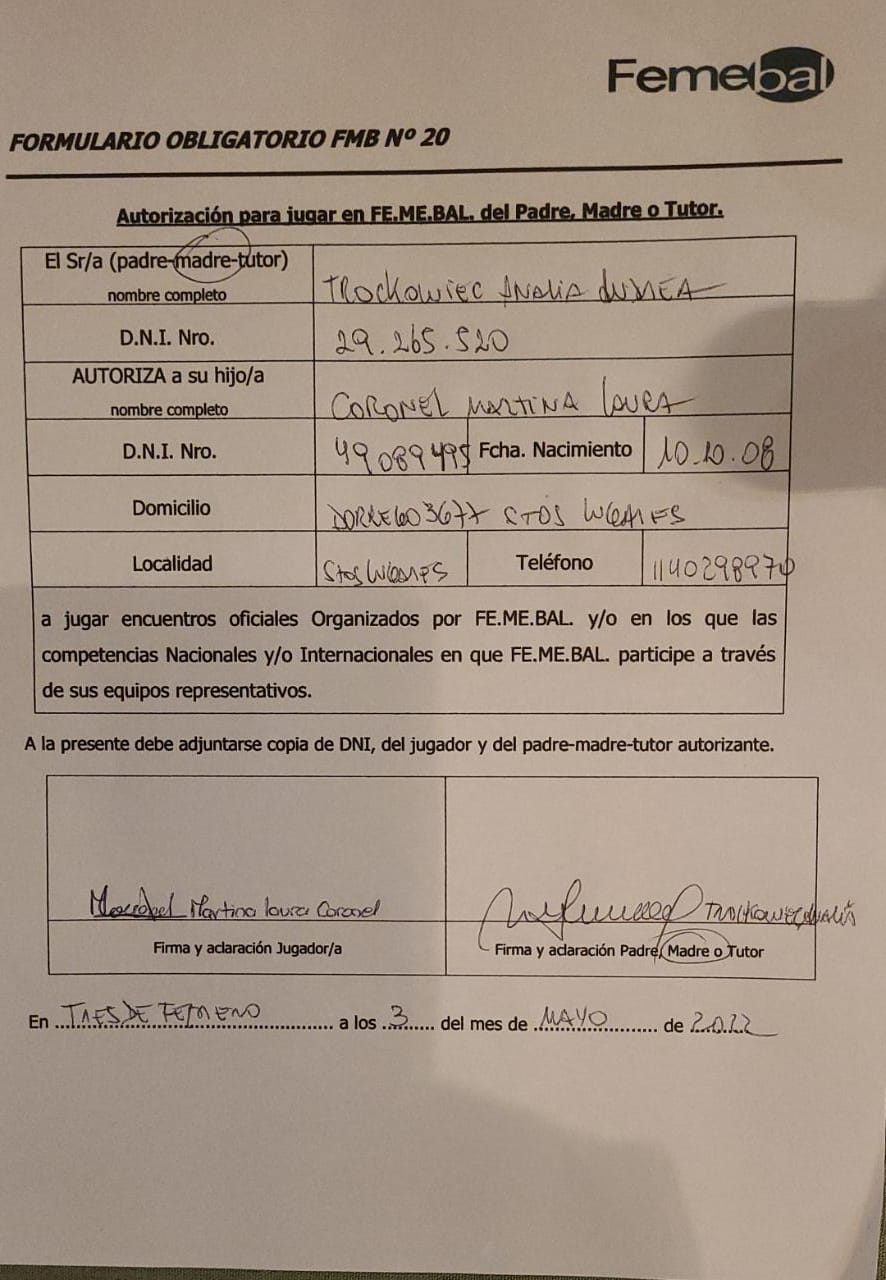 Femebal
FORMULARIO OBLIGATORIO FMB Nº 20
Autorización para jugar en FE.ME.BAL. del Padre, Madre o Tutor.
El Sr/a (padre-madre-tutor)
nombre completo
TROCKOWIEC ANALIA
D.N.I. Nro.
29.265.520
AUTORIZA a su hijo/a
nombre completo
CORONEL MARTINA LAURA
D.N.I. Nro.
49089495
Fcha. Nacimiento
10.10.08
Domicilio
DORREGO 3677 STOS LUGARES
Localidad
STOS LUGARES
Teléfono
1140298970
a jugar encuentros oficiales Organizados por FE.ME.BAL. y/o en los que las
competencias Nacionales y/o Internacionales en que FE.ME.BAL. participe a través
de sus equipos representativos.
A la presente debe adjuntarse copia de DNI, del jugador y del padre-madre-tutor autorizante.
Martina laura Coronel
TROCKOWIEC ANALIA
Firma y aclaración Jugador/a
Firma y aclaración Padre, Madre o Tutor
En TRES DE FEBRERO a los 3 del mes de MAYO de 2022